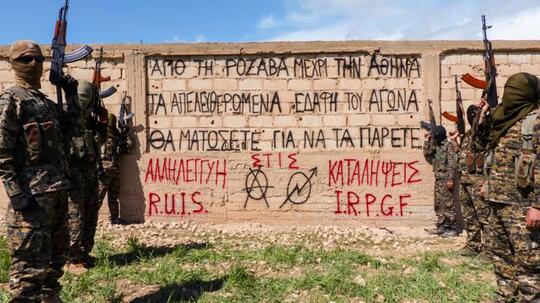 ΑΠΟ ΤΗ ΡΟΖΑΒΑ ΜΕΧΡΙ ΤΗΝ ΑΘΗΝΑ
ΤΑ ΑΠΕΛΕΥΘΕΡΟΜΕΝΑ ΕΔΑΦΗ ΤΟΥ ΑΓΩΝΑ
ΘΑ ΜΑΤΩΣΕΤΕ ΓΙΑ ΝΑ ΤΑ ΠΑΡΕΤΕ
ΑΛΗΛΕΓΓΥΗ ΣΤΙΣ ΚΑΤΑΛΗΨΕΙΣ
R.U.I.S. I.R.P.G.F.